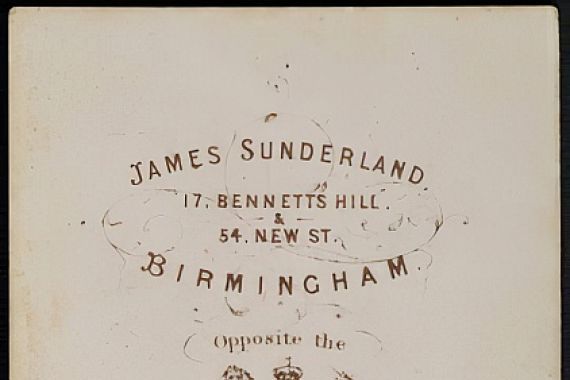 JAMES SUNDERLAND.
17, BENNETTS HILL.
&
54, NEW ST.
BIRMINGHAM.
Opposite the